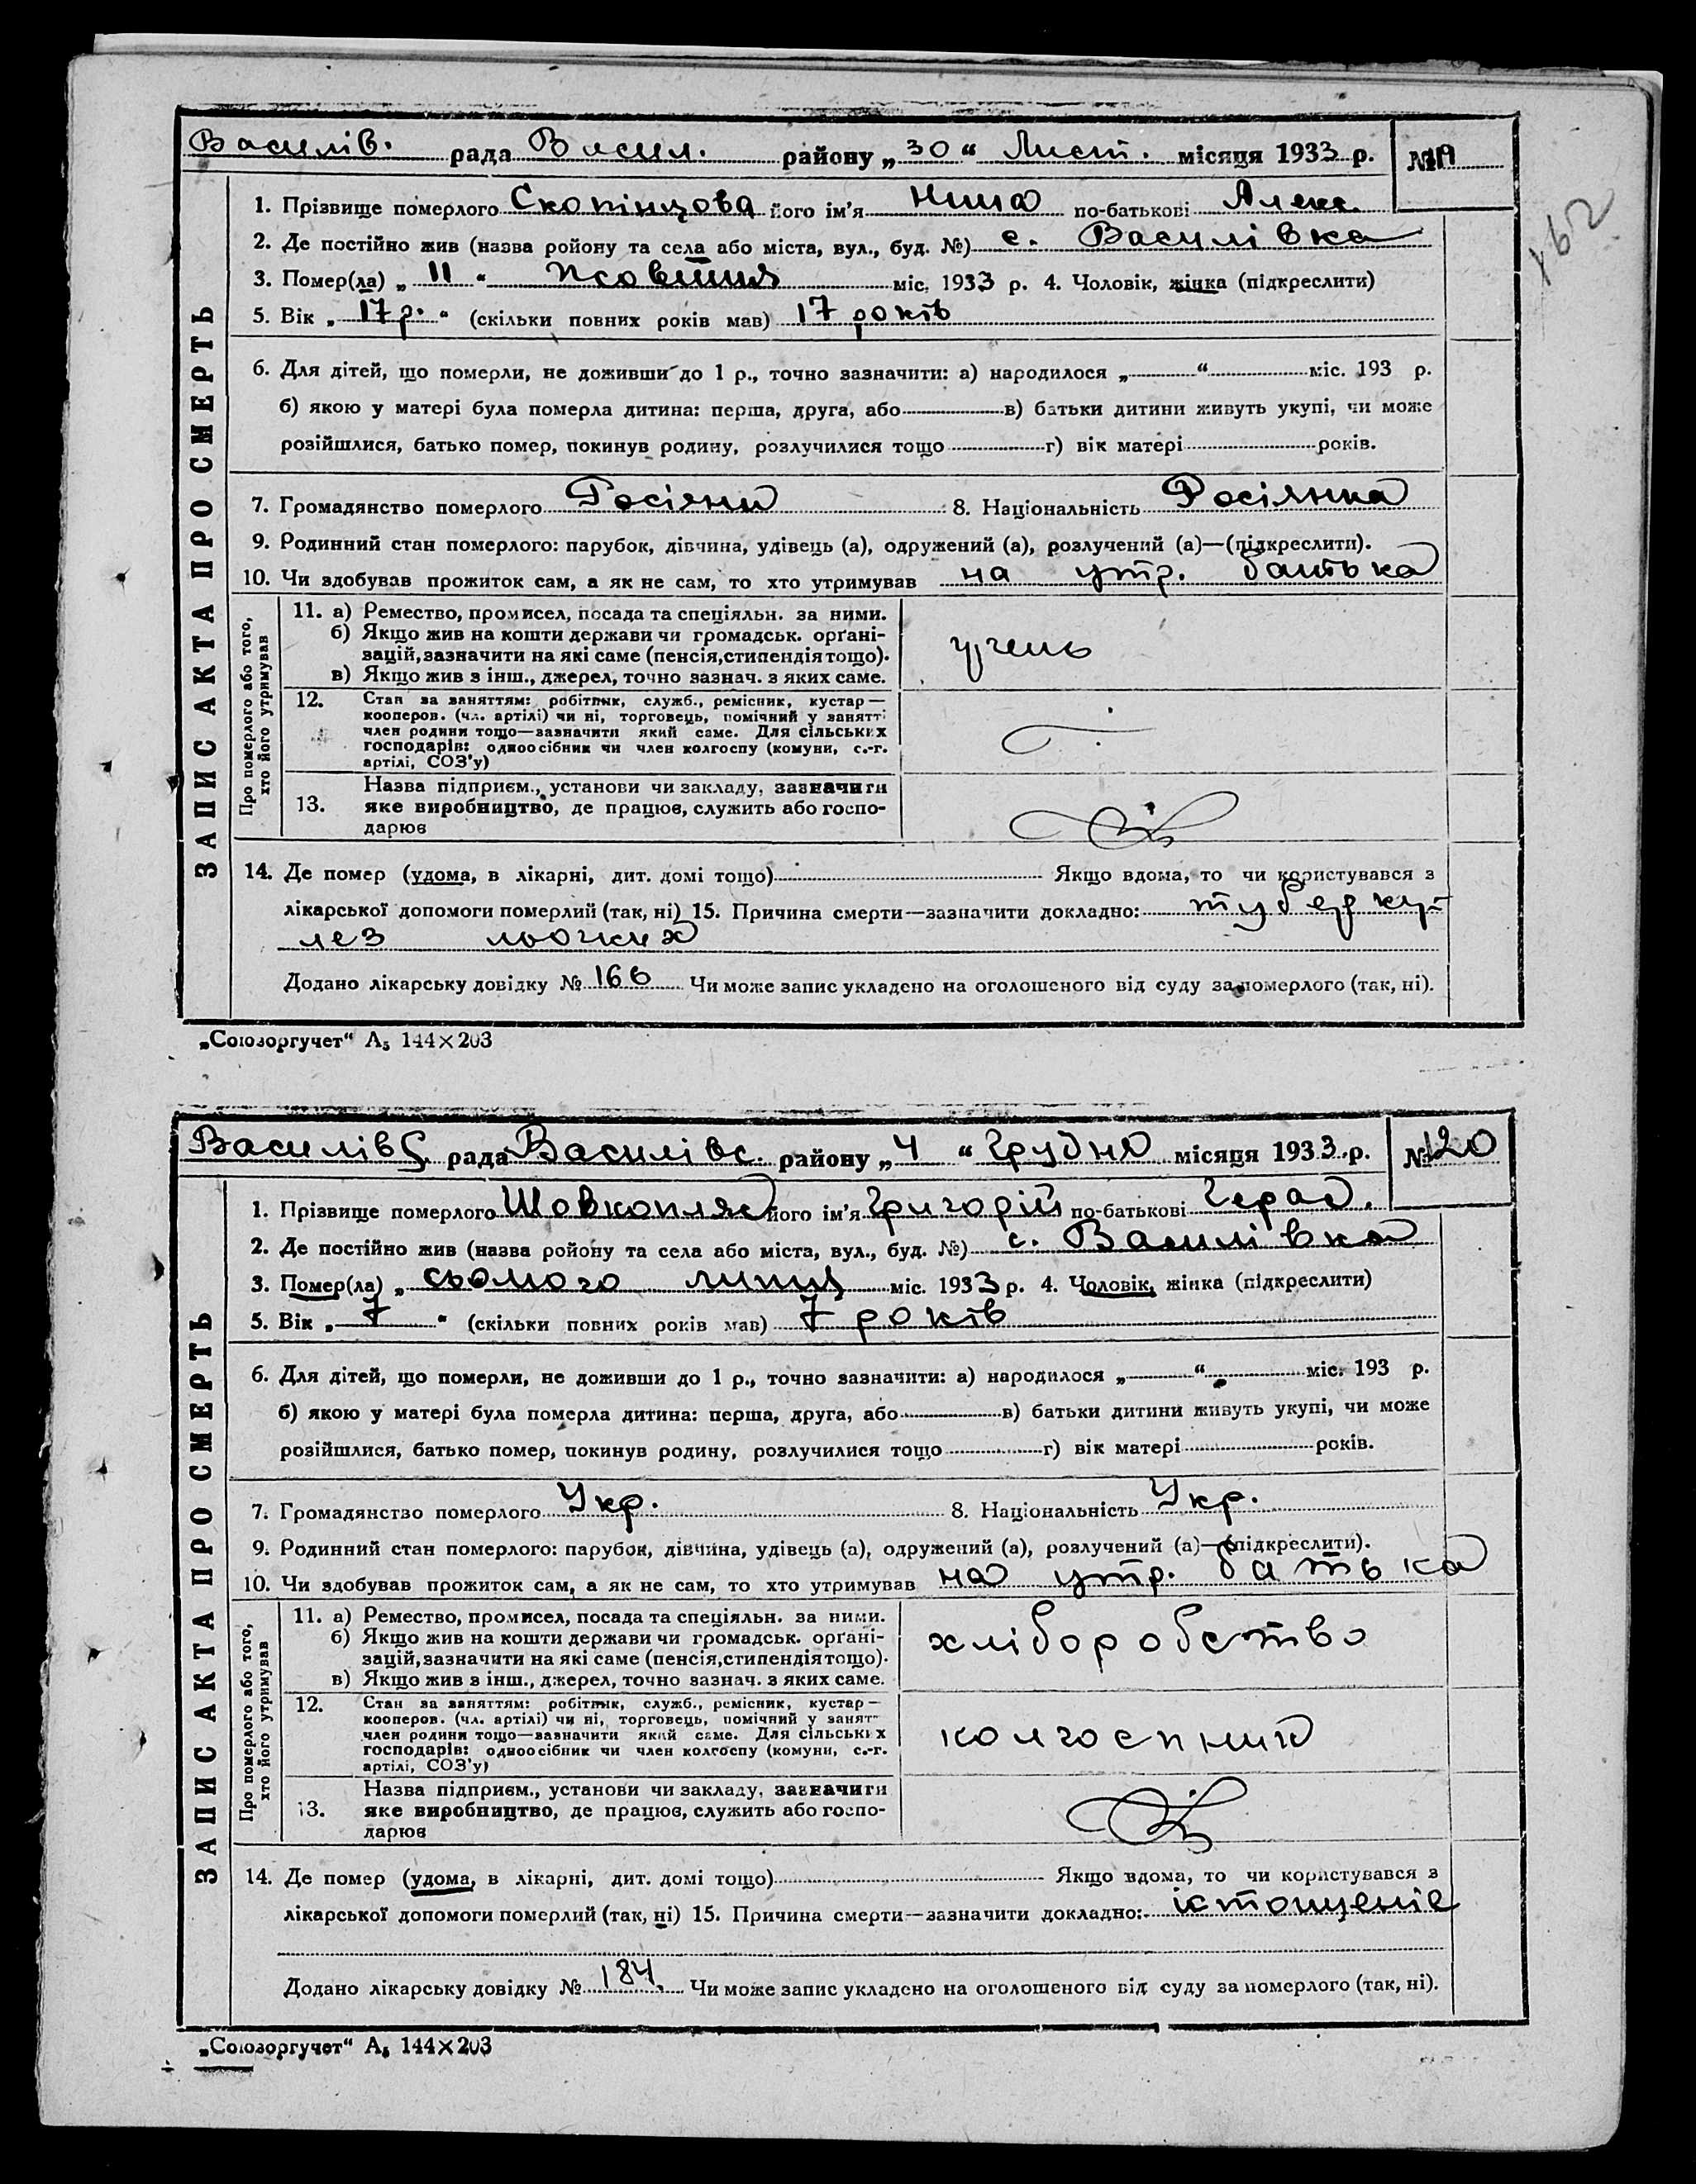 Василів. рада Васил. району „30“ Лист. місяця 1933 р. №
162
ЗАПИС АКТА ПРО СМЕРТЬ
1. Прізвище померлого Скопінцова його ім'я Нина по-батькові Алекс.
2. Де постійно жив (назва ройону та села або міста, вул., буд. №) с. Василівка
3. Помер(ла) „11“ жовтня міс. 1933 р. 4. Чоловік, жінка (підкреслити)
5. Вік „17 р.“ (скільки повних років мав) 17 років
6. Для дітей, що померли, не доживши до 1 р., точно зазначити: а) народилося „ “ міс. 193 р.
б) якою у матері була померла дитина: перша, друга, або в) батьки дитини живуть укупі, чи може
розійшлися, батько помер, покинув родину, розлучилися тощо г) вік матері років.
7. Громадянство померлого Росіяни 8. Національність Росіянка
9. Родинний стан померлого: парубок, дівчина, удівець (а), одружений (а), розлучений (а)—(підкреслити).
10. Чи здобував прожиток сам, а як не сам, то хто утримував на утр. батька
Про померлого або того,
хто його утримував
11. а) Ремество, промисел, посада та спеціяльн. за ними.
б) Якщо жив на кошти держави чи громадськ. орґані-
зацій, зазначити на які саме (пенсія, стипендія тощо).
в) Якщо жив з інш., джерел, точно зазнач. з яких саме.
учень
12. Стан за заняттям: робітник, служб., ремісник, кустар—
кооперов. (чл. артілі) чи ні, торговець, помічний у занятті
член родини тощо—зазначити який саме. Для сільських
господарів: одноосібник чи член колгоспу (комуни, с.-г.
артілі, СОЗ'у)
13. Назва підприєм., установи чи закладу, зазначити
яке виробництво, де працює, служить або госпо-
дарює
14. Де помер (удома, в лікарні, дит. домі тощо) Якщо вдома, то чи користувався з
лікарської допомоги померлий (так, ні) 15. Причина смерти—зазначити докладно: туберку-
лез льогких
Додано лікарську довідку № 166 Чи може запис укладено на оголошеного від суду за померлого (так, ні).
„Союзоргучет“ А₅ 144×203
Василівс. рада Василівс. району „4“ Грудня місяця 1933 р. № 120
ЗАПИС АКТА ПРО СМЕРТЬ
1. Прізвище померлого Шовкопляс його ім'я Григорій по-батькові Герас.
2. Де постійно жив (назва ройону та села або міста, вул., буд. №) с. Василівка
3. Помер(ла) „сьомого липця міс. 1933 р. 4. Чоловік, жінка (підкреслити)
5. Вік „7“ (скільки повних років мав) 7 років
6. Для дітей, що померли, не доживши до 1 р., точно зазначити: а) народилося „ “ міс. 193 р.
б) якою у матері була померла дитина: перша, друга, або в) батьки дитини живуть укупі, чи може
розійшлися, батько помер, покинув родину, розлучилися тощо г) вік матері років.
7. Громадянство померлого Укр. 8. Національність Укр.
9. Родинний стан померлого: парубок, дівчина, удівець (а), одружений (а), розлучений (а)—(підкреслити).
10. Чи здобував прожиток сам, а як не сам, то хто утримував на утр. батька
Про померлого або того,
хто його утримував
11. а) Ремество, промисел, посада та спеціяльн. за ними.
б) Якщо жив на кошти держави чи громадськ. орґані-
зацій, зазначити на які саме (пенсія, стипендія тощо).
в) Якщо жив з інш., джерел, точно зазнач. з яких саме.
хліборобство
12. Стан за заняттям: робітник, служб., ремісник, кустар—
кооперов. (чл. артілі) чи ні, торговець, помічний у занят
член родини тощо—зазначити який саме. Для сільських
господарів: одноосібник чи член колгоспу (комуни, с.-г.
артілі, СОЗ'у)
колгоспник
13. Назва підприєм., установи чи закладу, зазначити
яке виробництво, де працює, служить або госпо-
дарює
14. Де помер (удома, в лікарні, дит. домі тощо) Якщо вдома, то чи користувався з
лікарської допомоги померлий (так, ні) 15. Причина смерти—зазначити докладно: істощеніе
Додано лікарську довідку № 184. Чи може запис укладено на оголошеного від суду за померлого (так, ні).
„Союзоргучет“ А₅ 144×203